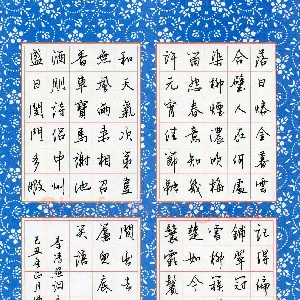 落日熔金暮雲
合璧人在何處
染柳煙濃吹梅
笛怨春意知幾
許元宵佳節融
和天氣次第豈
無風雨來相召
香車寶馬謝他
酒朋詩侶中州
盛日閨門多暇
記得偏
鋪翠冠
雪柳簇
楚如今
鬟霜鬢
間出去
簾兒底
笑語
李清照詞永
己丑年正月